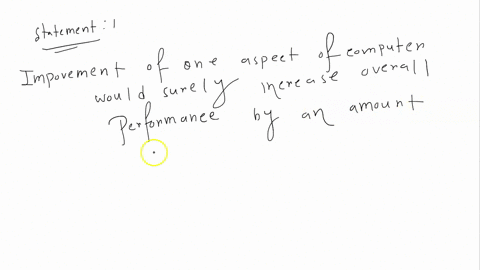 Statement : 1
Impovement of one aspect of computer
would surely increase overall
Performance by an amount